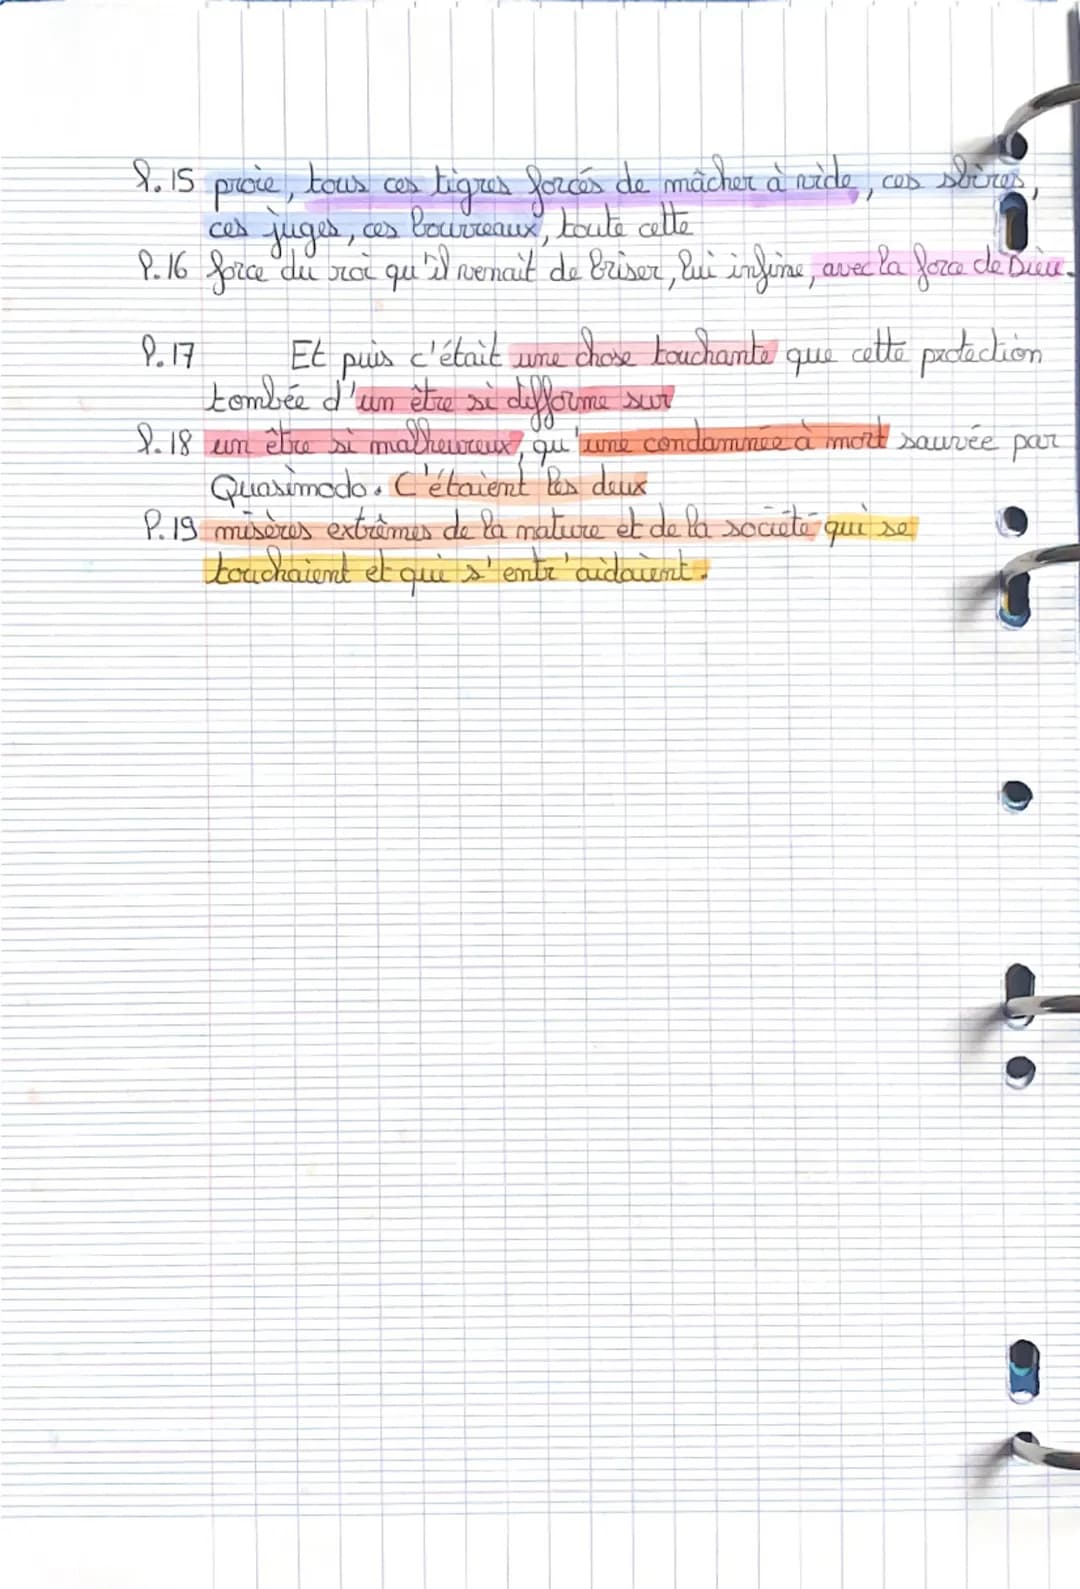 l.15 proie, tous ces tigres forcés de mâcher à vide, ces sbires,
ces juges, ces bourreaux, toute cette
P.16 force du roi qu'il venait de briser, lui infime, avec la force de Dieu.
P.17 Et puis c'était une chose touchante que cette protection
tombée d'un être si difforme sur
l.18 un être si malheureux, qu'une condamnée à mort sauvée par
Quasimodo. C'étaient les deux
P.19 misères extrêmes de la nature et de la société qui se
touchaient et qui s'entr'aidaient.